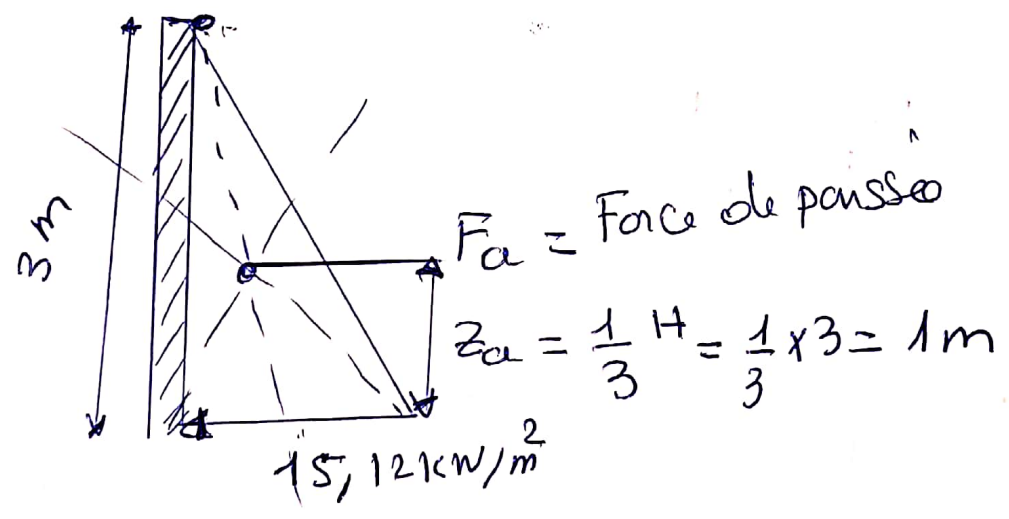 3 m
Fa = Force de poussée
Za = 1/3 H = 1/3 x 3 = 1m
15,12 KN/m²